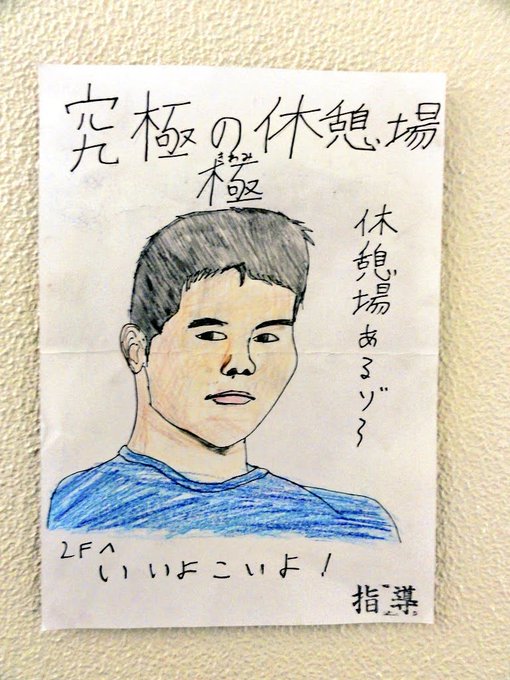 究極の休憩場
きわみ
極
休憩場あるゾ〜
2Fへ
いいよこいよ！
指導